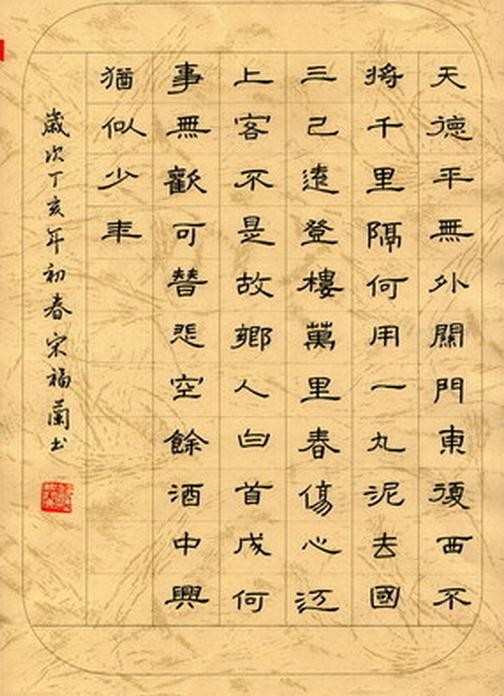 天德平無外關門東復西不
將千里隔何用一丸泥去國
三己遠登樓萬里春傷心江
上客不是故鄉人白首成何
事無歡可替悲空餘酒中興
猶似少年
歲次丁亥年初春宋福蘭书